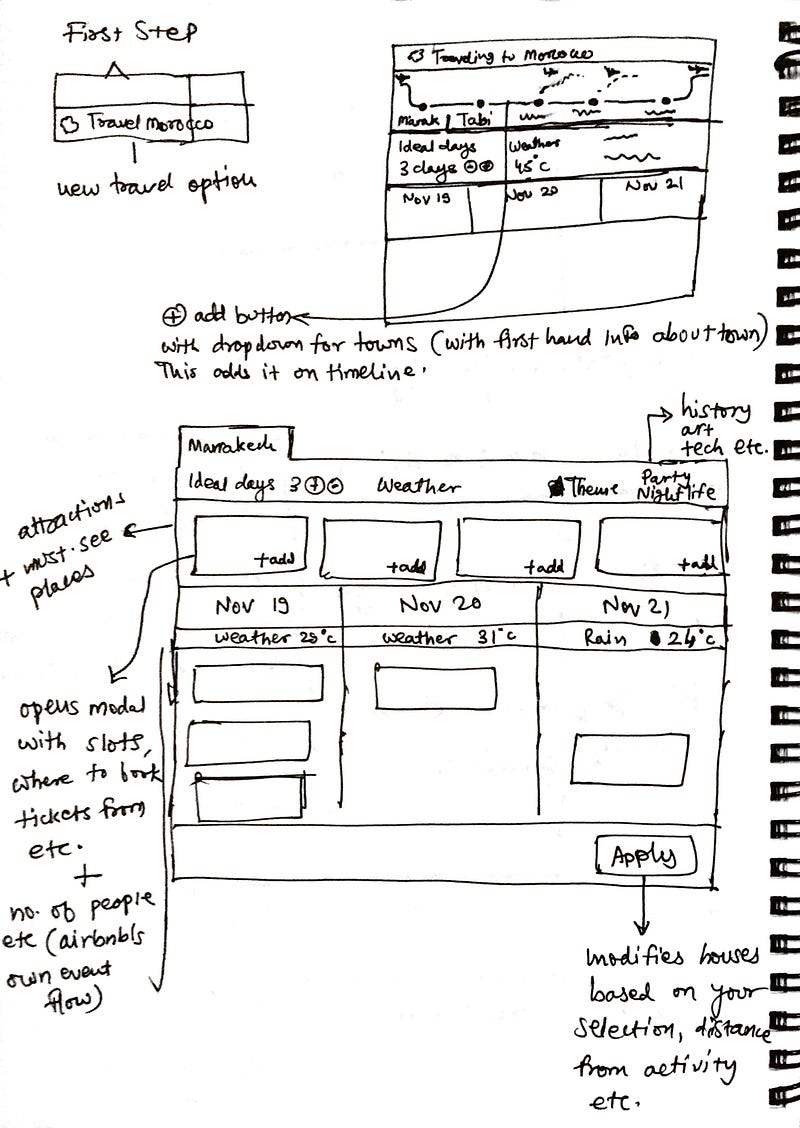 First Step
Travel Morocco
new travel option
Traveling to Morocco
Marak
Tabi
Ideal days
3 days ⊕⊖
Weather
45°C
Nov 19
Nov 20
Nov 21
⊕ add button
with dropdown for towns (with first hand Info about town)
This adds it on timeline.
history
art
tech etc.
Marrakech
Ideal days 3 ⊕⊖
Weather
Theme
Party
Nightlife
attractions
+ must-see
places
+add
+add
+add
+add
Nov 19
Nov 20
Nov 21
weather 29°C
weather 31°C
Rain 24°C
opens modal
with slots,
where to book
tickets from
etc.
+
no. of people
etc (airbnb's
own event
flow)
Apply
modifies houses
based on your
selection, distance
from activity
etc.